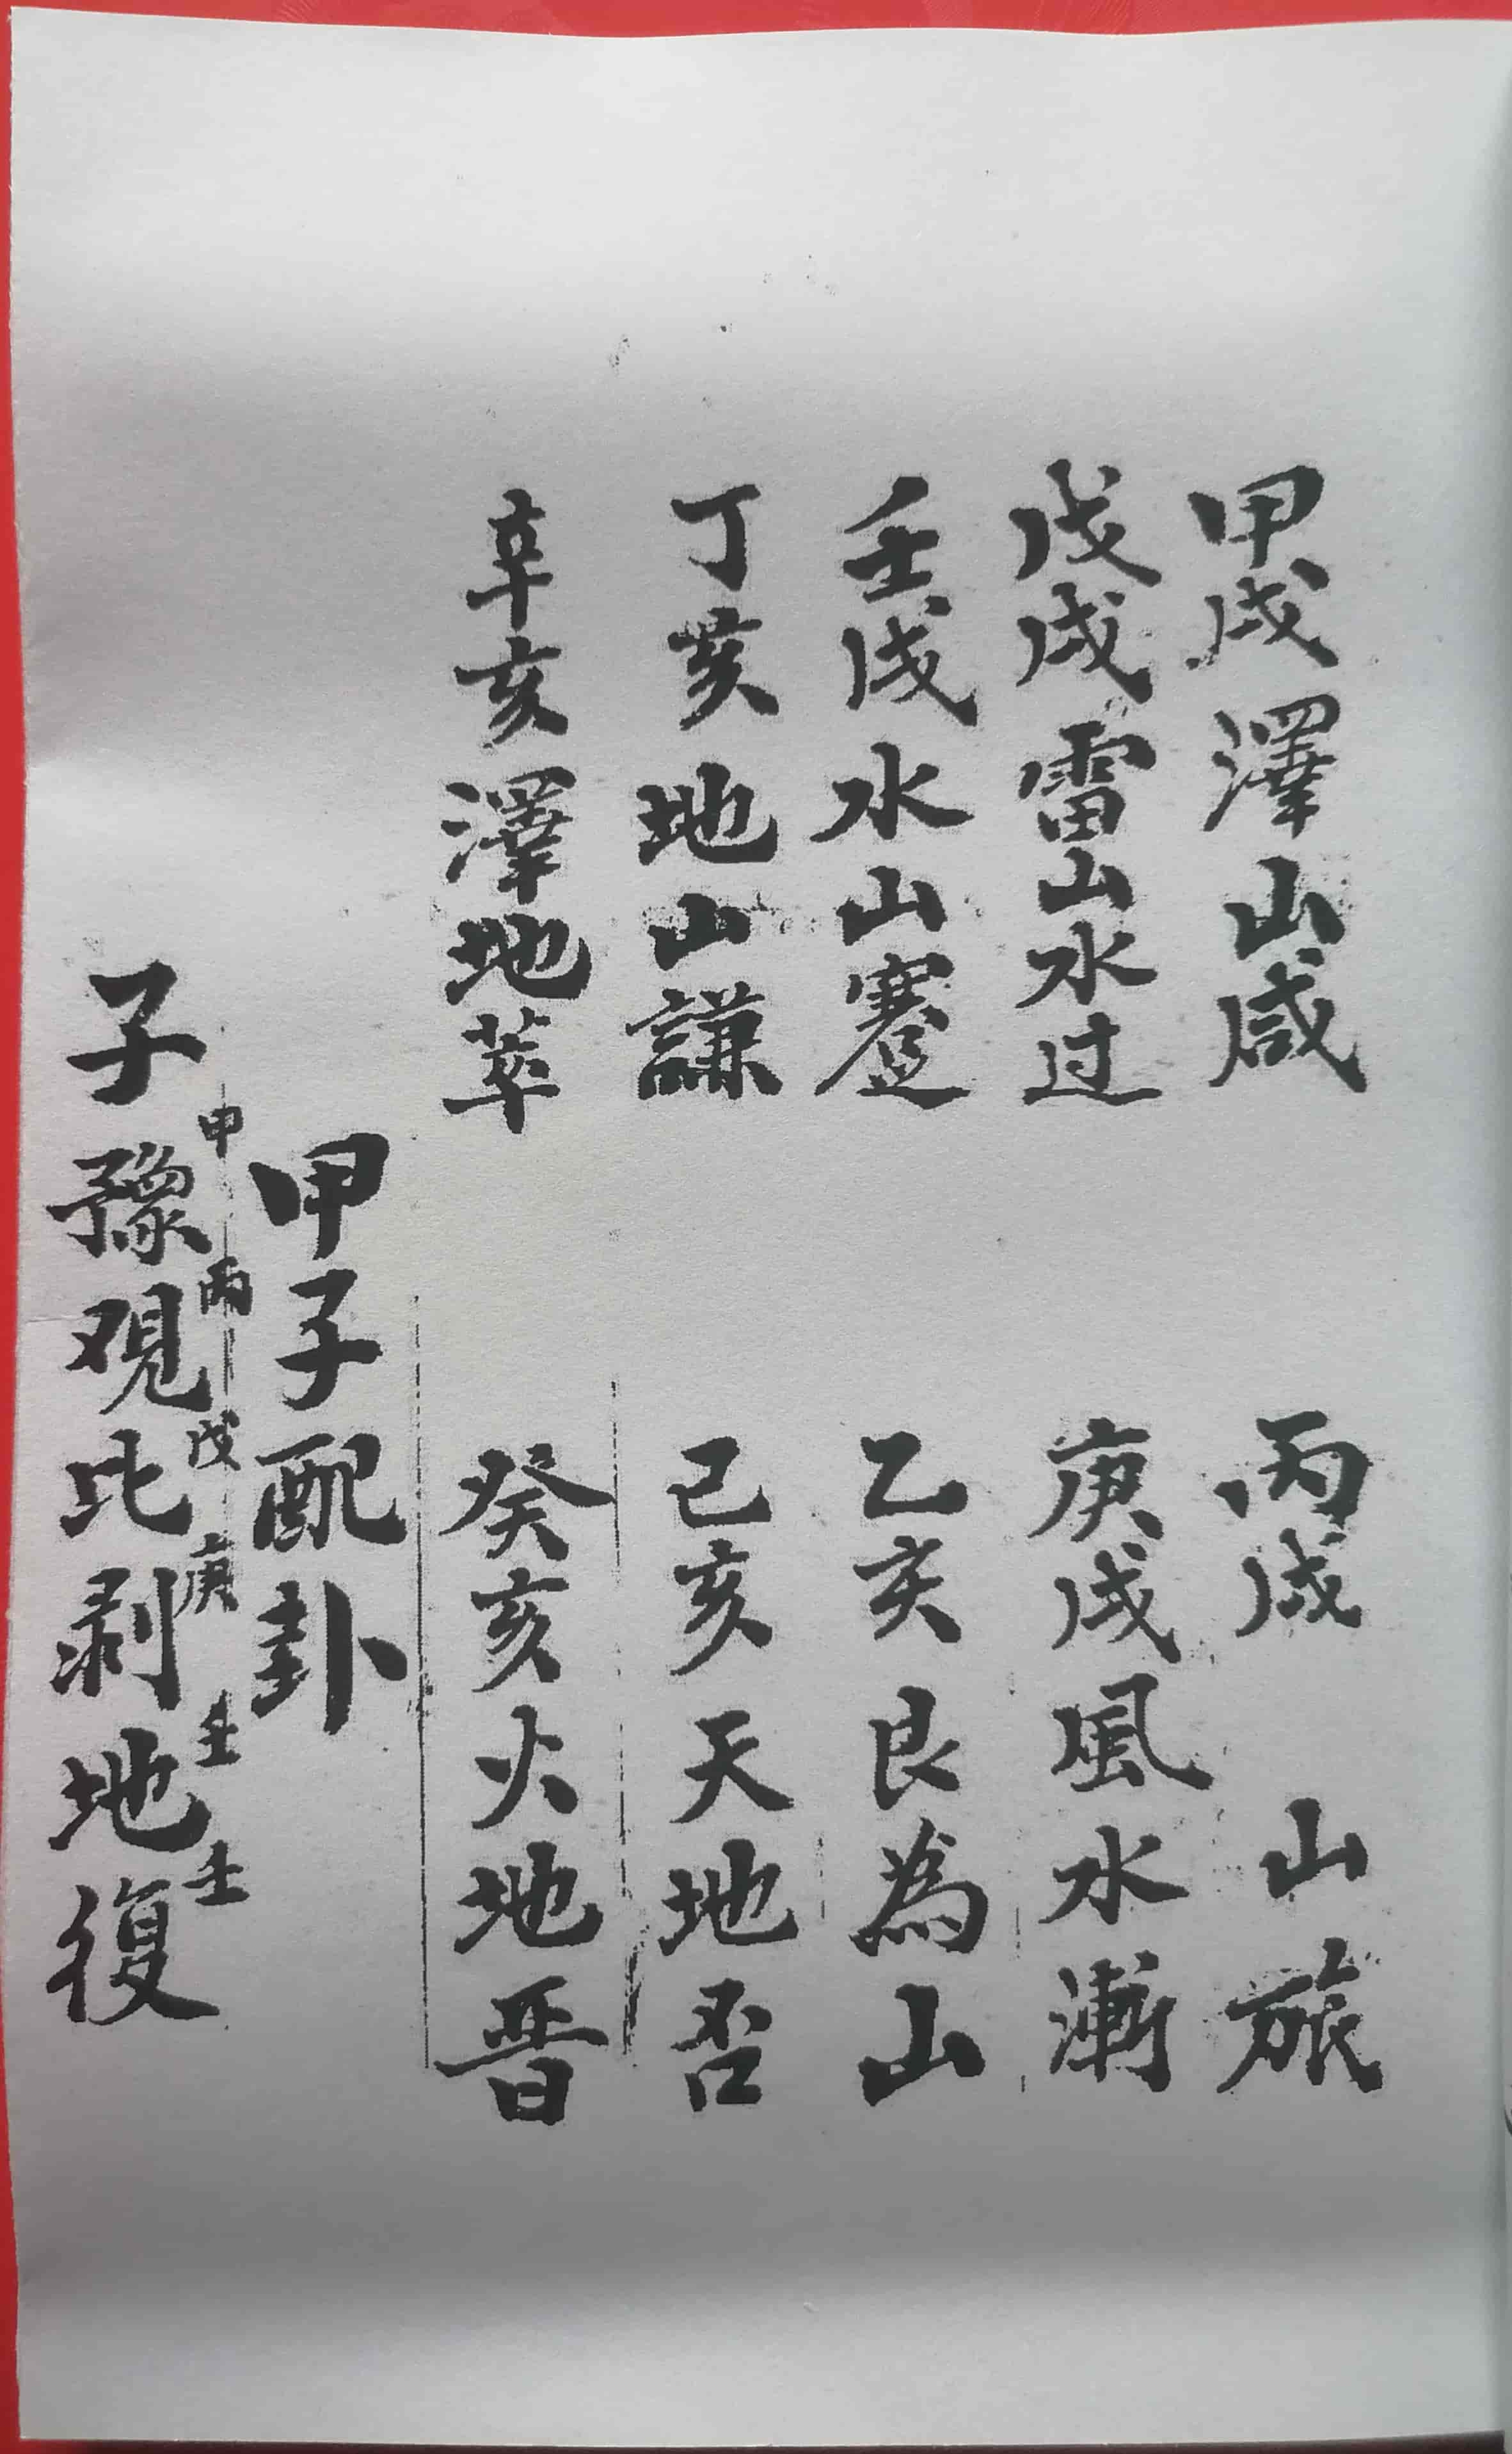 甲戌澤山咸
丙戌 山旅
戊戌雷山水过
庚戌風水漸
壬戌水山蹇
乙亥艮為山
丁亥地山謙
己亥天地否
辛亥澤地萃
癸亥火地晋
甲子配卦
甲丙戊庚壬壬
子豫观比剥地復